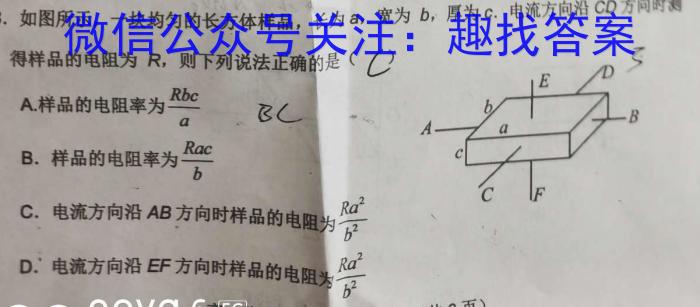 如图所示，一块均匀的长方体样品，长为 a，宽为 b，厚为 c，电流方向沿 CD 方向时测
微信公众号关注：趣找答案
得样品的电阻为 R，则下列说法正确的是（ C
A.样品的电阻率为 Rbc/a
BC
B．样品的电阻率为 Rac/b
C．电流方向沿 AB 方向时样品的电阻为 Ra²/b²
D．电流方向沿 EF 方向时样品的电阻为 Ra²/b²
E
D
b
A
a
B
c
C
F